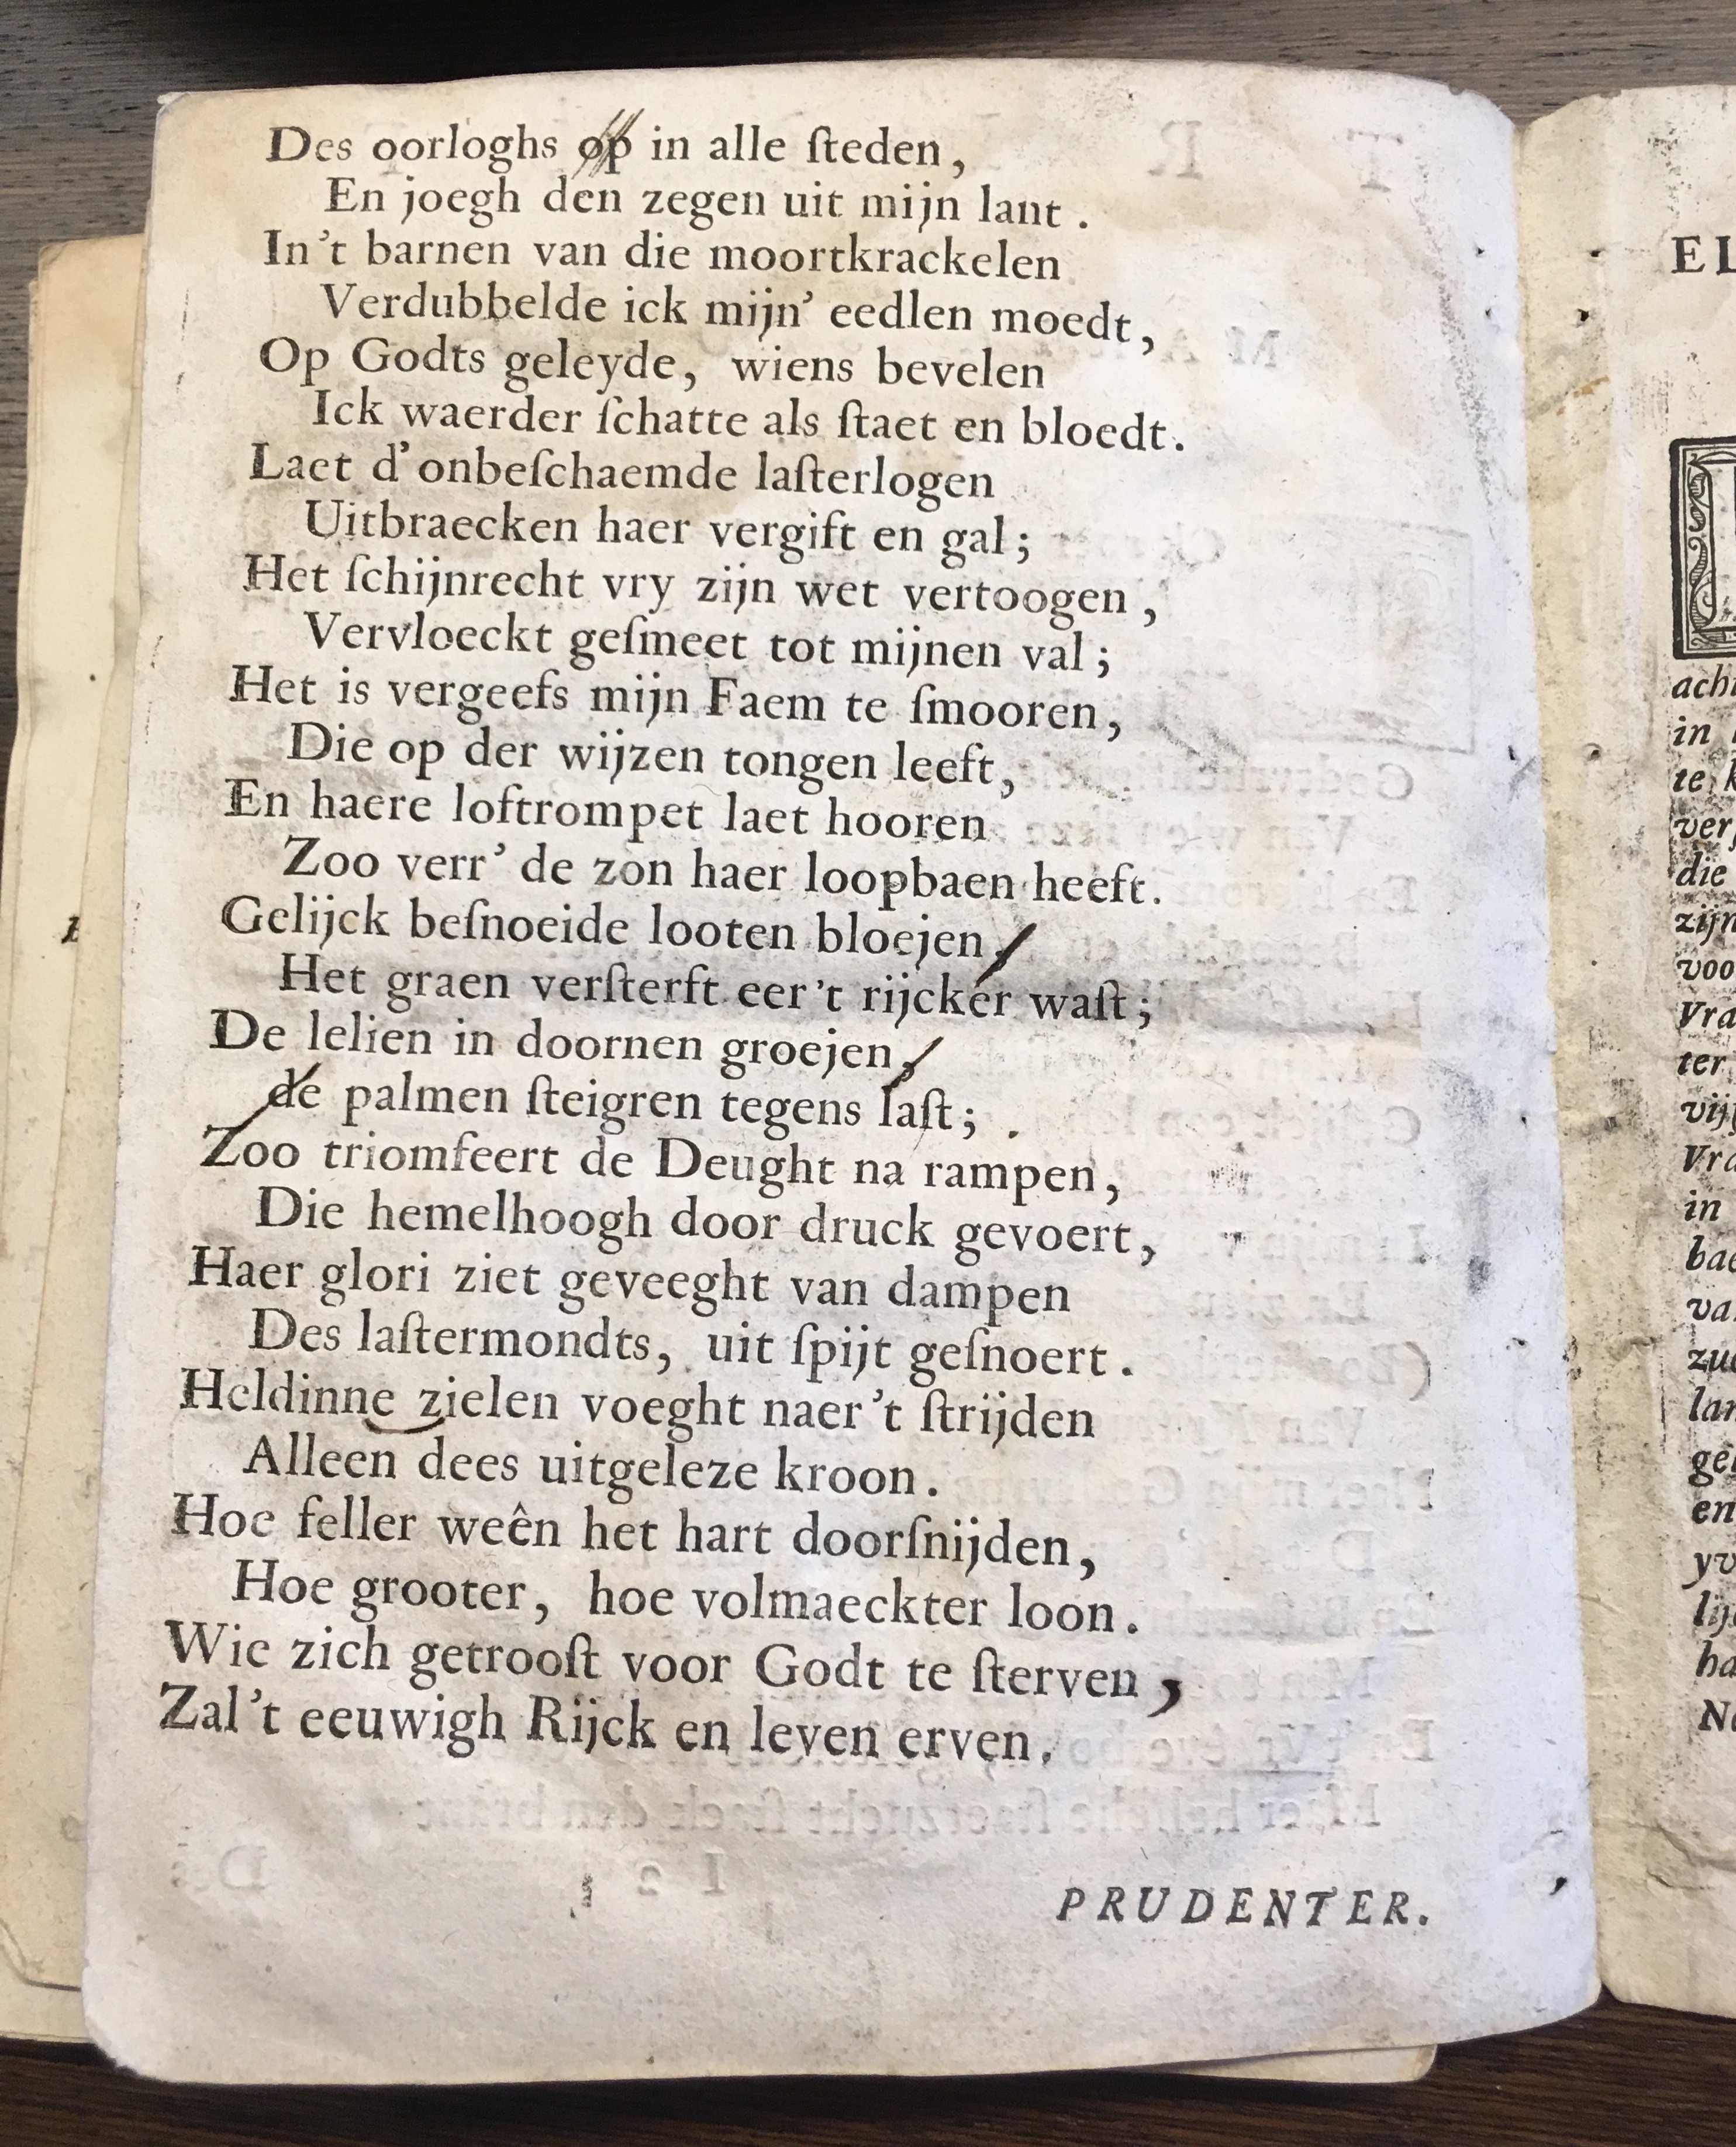 Des oorloghs op in alle ſteden,
En joegh den zegen uit mijn lant.
In 't barnen van die moortkrackelen
Verdubbelde ick mijn' eedlen moedt,
Op Godts geleyde, wiens bevelen
Ick waerder ſchatte als ſtaet en bloedt.
Laet d' onbeſchaemde laſterlogen
Uitbraecken haer vergift en gal;
Het ſchijnrecht vry zijn wet vertoogen,
Vervloeckt geſmeet tot mijnen val;
Het is vergeefs mijn Faem te ſmooren,
Die op der wijzen tongen leeft,
En haere loftrompet laet hooren
Zoo verr' de zon haer loopbaen heeft.
Gelijck beſnoeide looten bloejen,
Het graen verſterft eer 't rijcker waſt;
De lelien in doornen groejen,
de palmen ſteigren tegens laſt;
Zoo triomfeert de Deught na rampen,
Die hemelhoogh door druck gevoert,
Haer glori ziet geveeght van dampen
Des laſtermondts, uit ſpijt geſnoert.
Heldinne zielen voeght naer 't ſtrijden
Alleen dees uitgeleze kroon.
Hoe feller weên het hart doorſnijden,
Hoe grooter, hoe volmaeckter loon.
Wie zich getrooſt voor Godt te ſterven,
Zal 't eeuwigh Rijck en leven erven.
PRUDENTER.
EL
in
te
die
ter
in
en